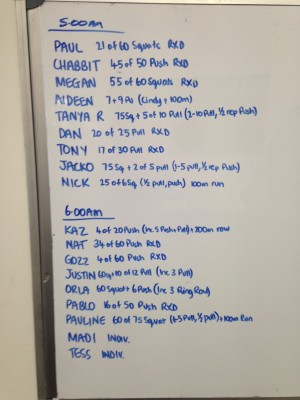 5:00AM
PAUL 21 of 60 Squats RXD
CHABBIT 45 of 50 Push RXD
MEGAN 55 of 60 Squats RXD
AIDEEN 7+9 Pu (Cindy + 100m)
TANYA R 75Sq + 5 of 10 Pull (2-10 Pull, ½ rep Push)
DAN 20 of 25 Pull RXD
TONY 17 of 30 Pull RXD
JACKO 75 Sq + 2 of 5 pull (1-5 pull, ½ rep Push)
NICK 25 of 65q (½ pull, push) 100m run
6:00AM
KAZ 4 of 20 Push (Inc 5 Push + Pull) + 200m row
NAT 34 of 60 Push RXD
GOZZ 4 of 60 Push RXD
JUSTIN 60sq + 10 of 12 Pull (Inc 3 Pull)
ORLA 60 Squat + 6 Push (Inc 3 Ring Row)
PABLO 16 of 50 Push RXD
PAULINE 60 of 75 Squat (+5 Pull, ½ pull) + 100m Run
MADI INDIV.
TESS INDIV.